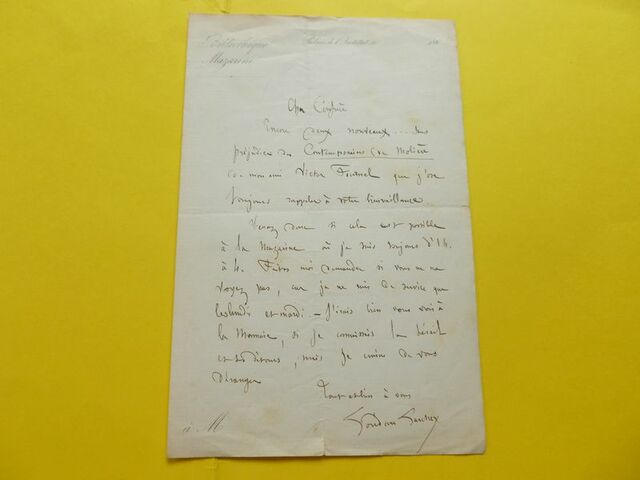 Bibliothèque
Mazarine
Palais de l'Institut, le
188
Cher Confrère
Encore deux nouveaux ... sans
préjudice des Contemporains de Molière
de mon ami Victor Fournel que j'ose
toujours rappeler à votre bienveillance.
Venez donc si cela est possible
à la Mazarine où je suis toujours d'1 h.
à 4. Faites moi demander si vous ne me
voyez pas, car je ne suis de service que
les lundi et mardi. – J'irais bien vous voir à
la Monnaie, si je connaissais la
et ses détours, mais je crains de vous
déranger
Tout entier à vous
Lorédan Larchey
à M